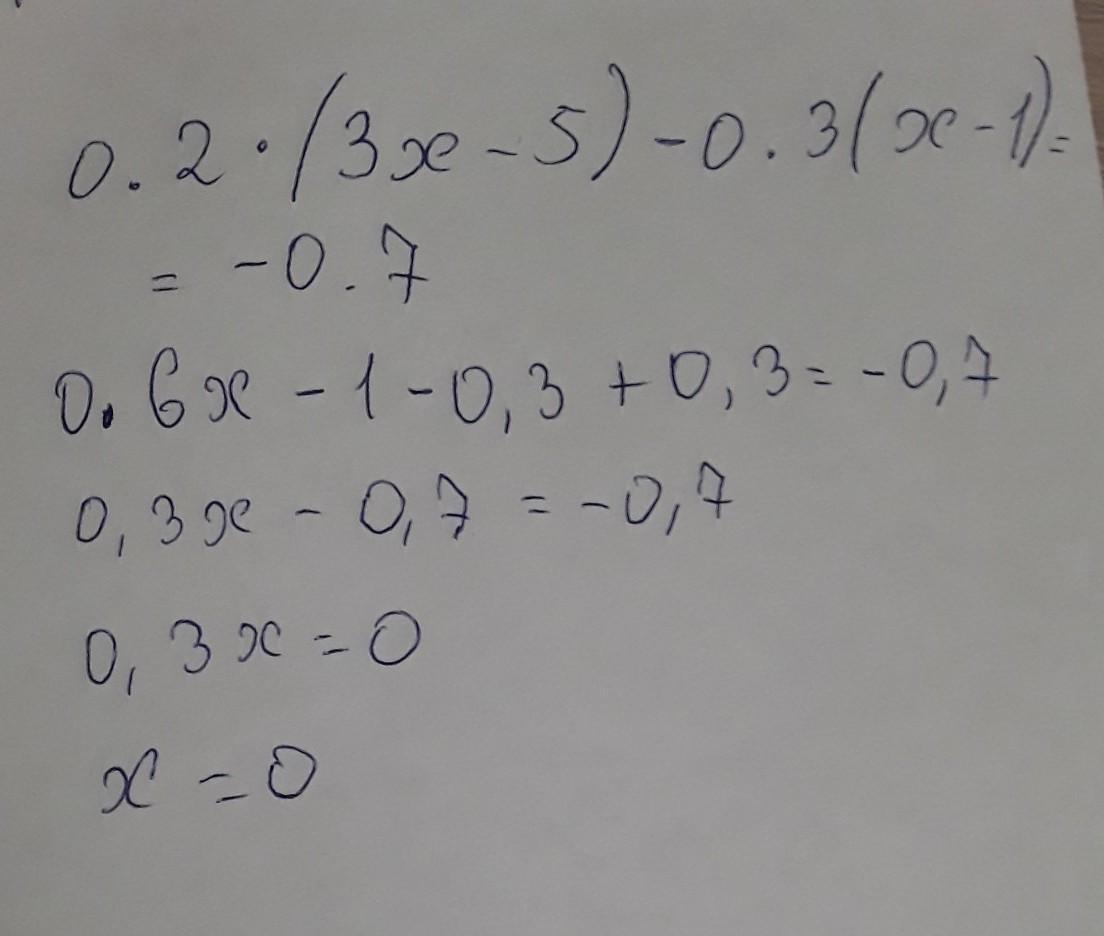 0.2·(3x-5)-0.3(x-1)=
= -0.7
0.6x-1-0,3+0,3=-0,7
0,3x-0,7=-0,7
0,3x=0
x=0